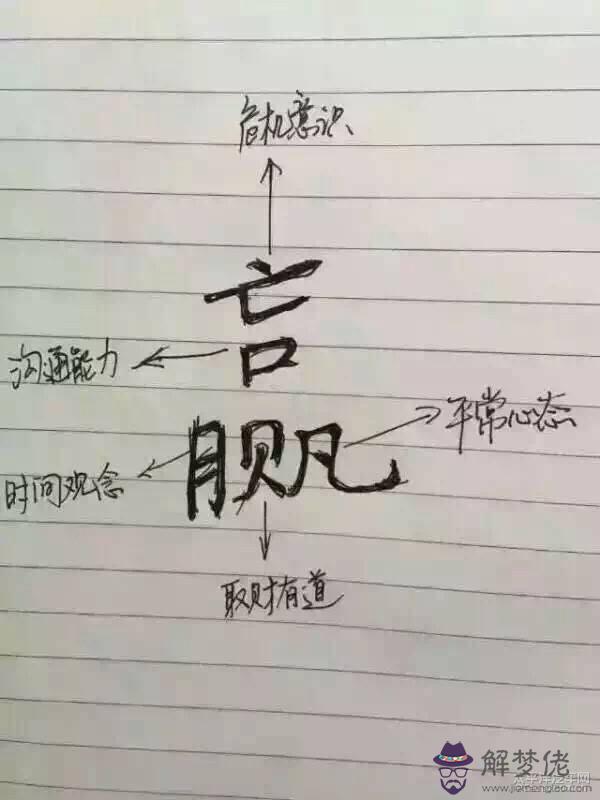 危机意识
亡
口
沟通能力
月贝凡
平常心态
时间观念
取财有道
解梦佬
www.jiemenglao.com